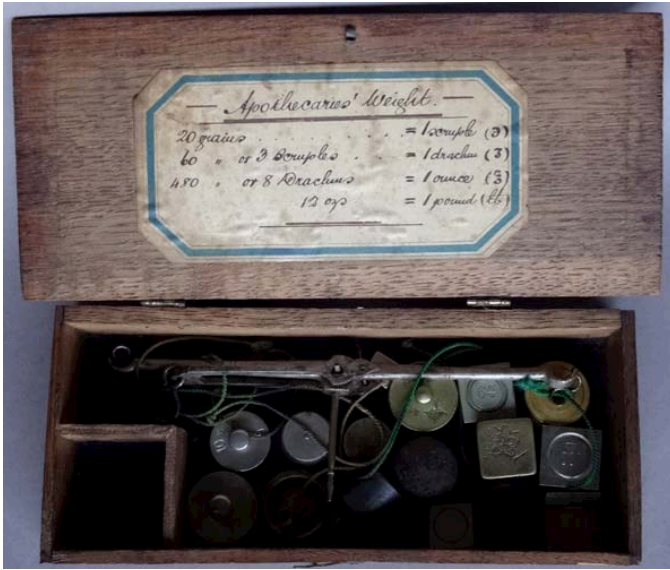 Apothecaries' Weight.
20 grains . . . . . . . = 1 scruple (℈)
60 " or 3 Scruples . . = 1 drachm (ʒ)
480 " or 8 Drachms = 1 ounce (℥)
12 ozs = 1 pound (lb.)